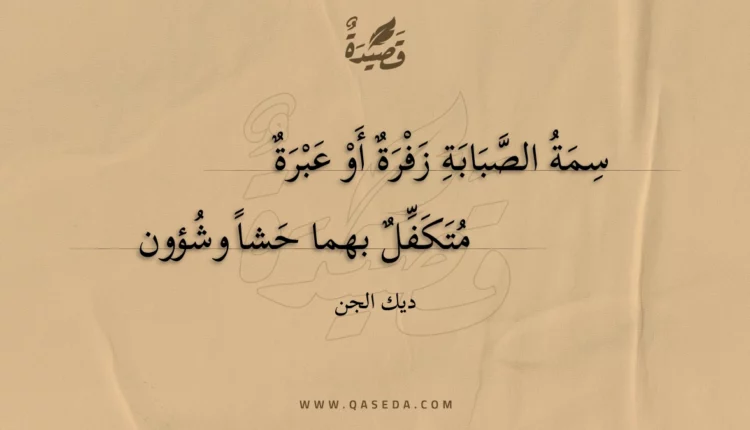 قَصِيْدَةٌ
سِمَةُ الصَّبَابَةِ زَفْرَةٌ أَوْ عَبْرَةٌ
مُتَكَفِّلٌ بهما حَشاً وشُؤون
ديك الجن
WWW.QASEDA.COM